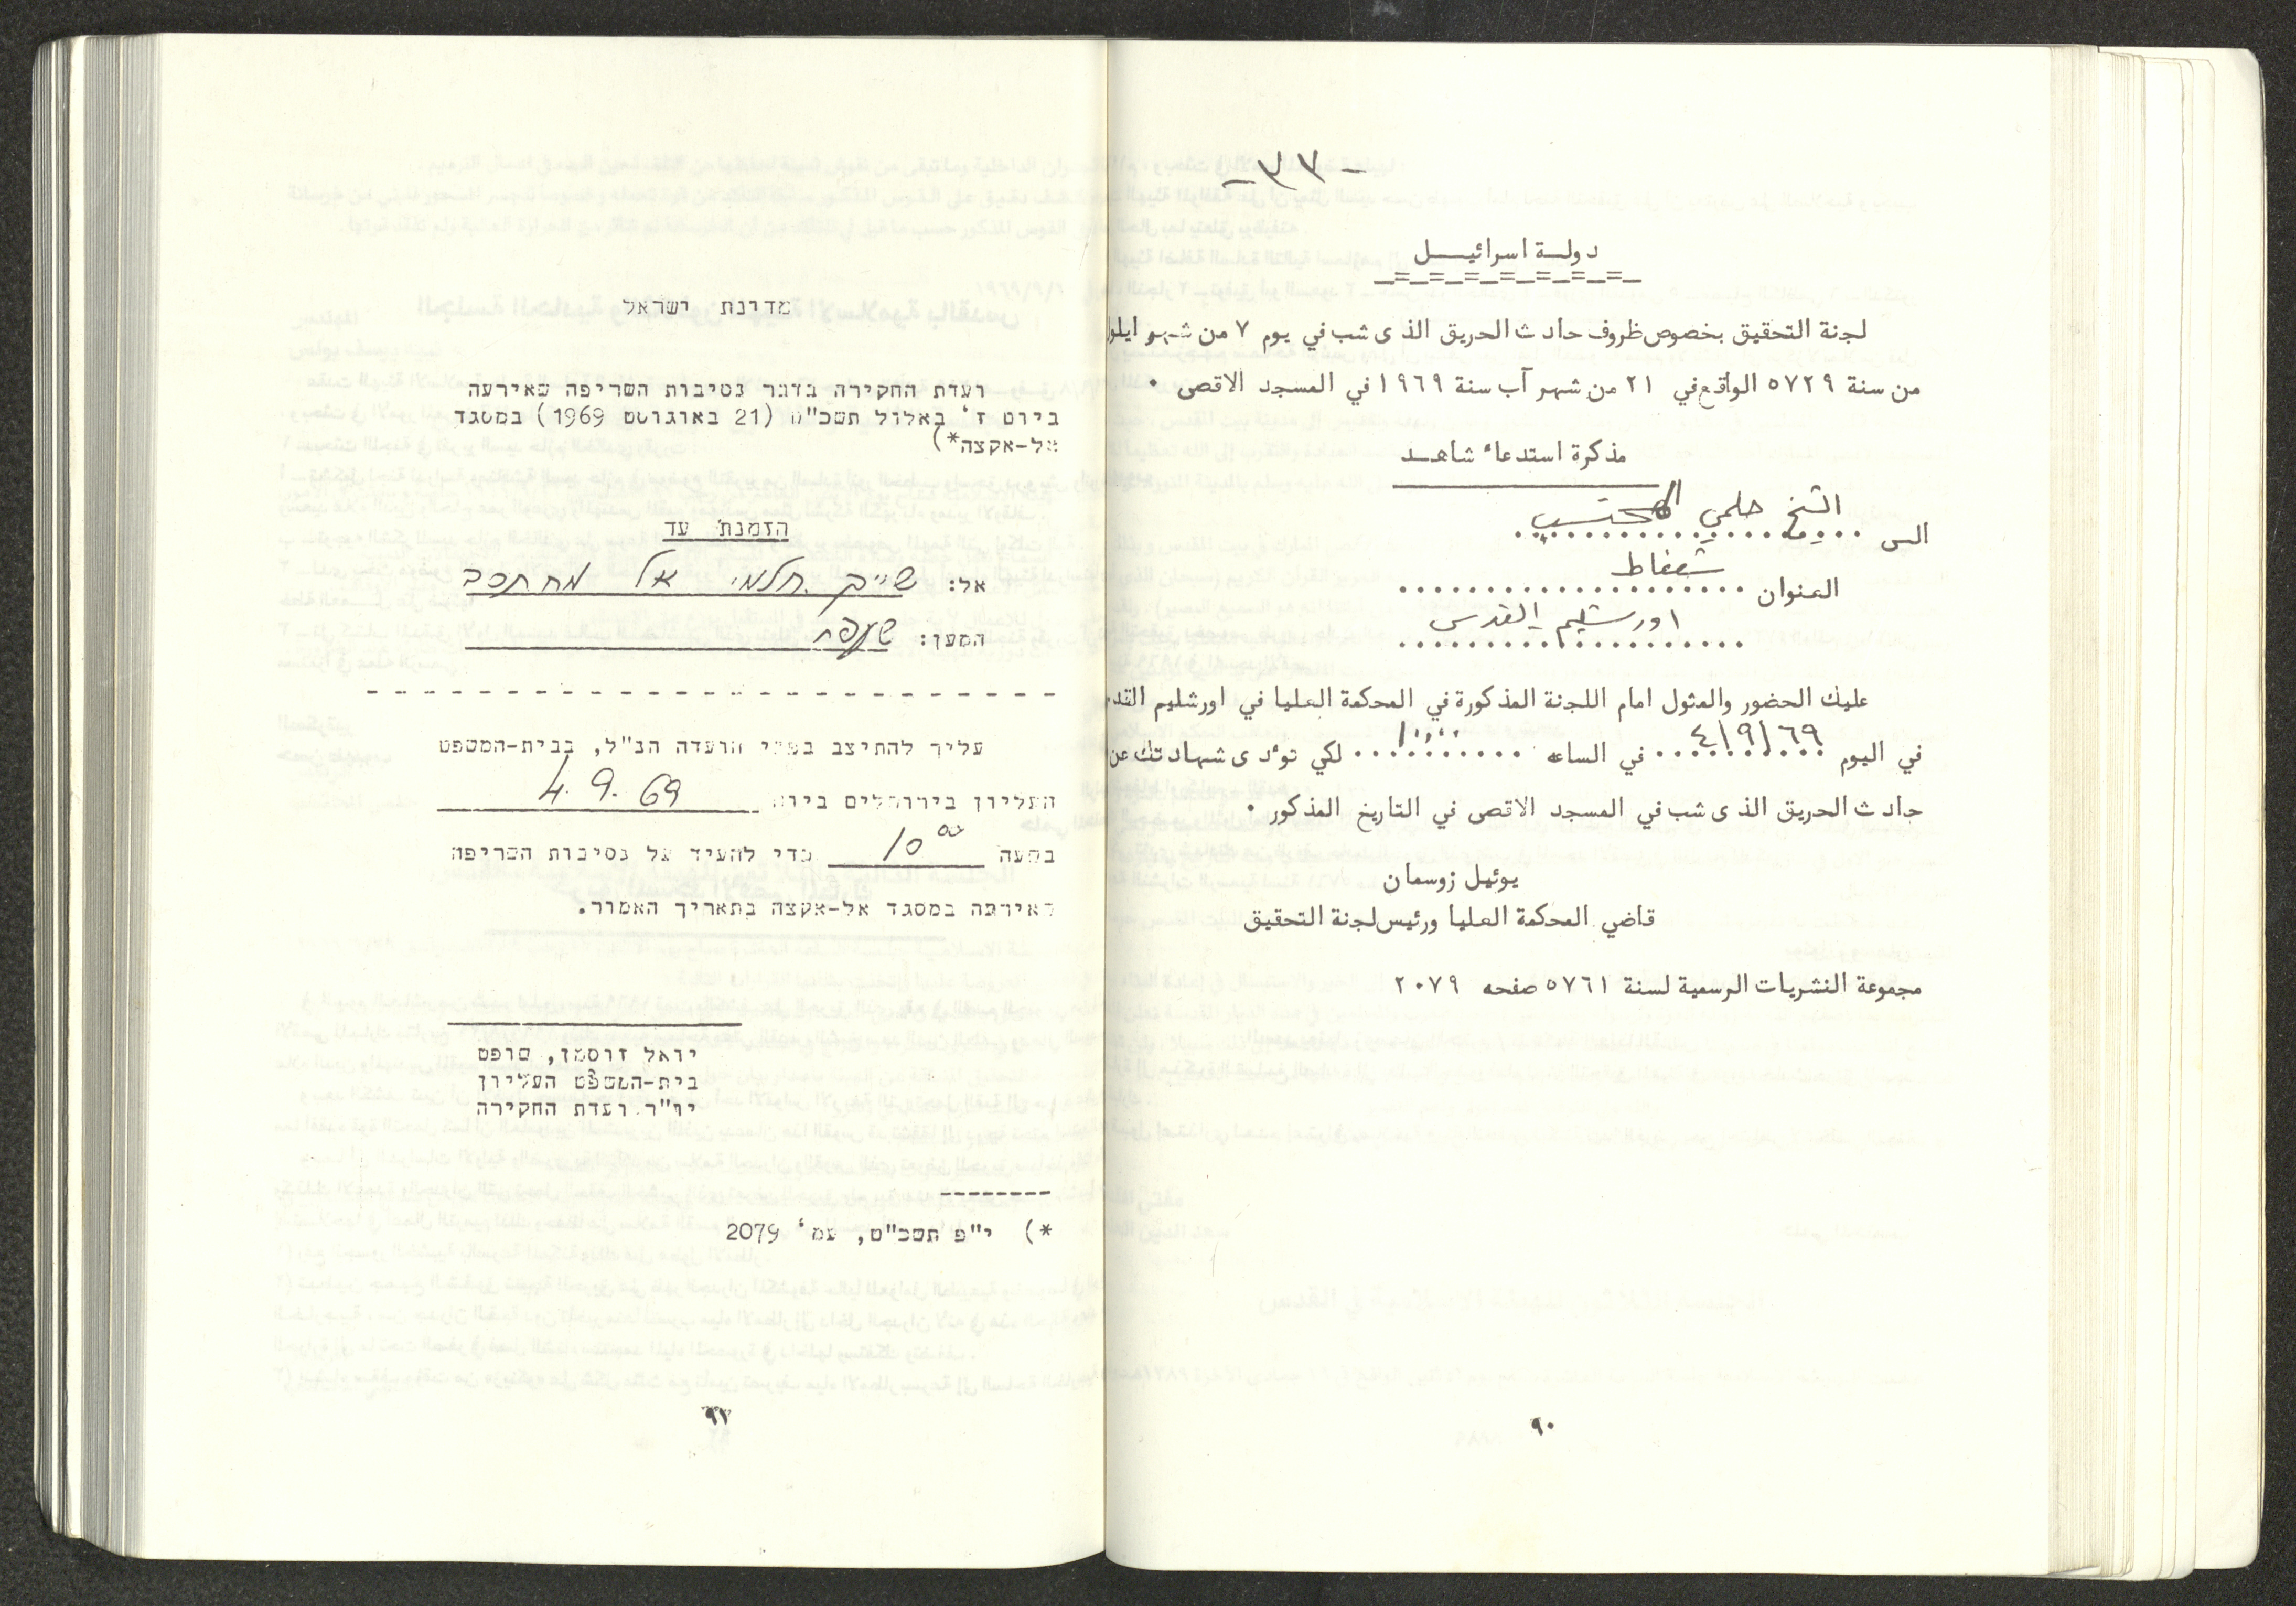 - ٢٧ -
دولة اسرائيل
لجنة التحقيق بخصوص ظروف حادث الحريق الذى شب في يوم ٧ من شهر ايلول
من سنة ٥٧٢٩ الواقع في ٢١ من شهر آب سنة ١٩٦٩ في المسجد الاقصى.
مذكرة استدعاء شاهد
الى الشيخ حلمي المحتسب
العنوان شعفاط
اورشليم القدس
عليك الحضور والمثول امام اللجنة المذكورة في المحكمة العليا في اورشليم القد
في اليوم ٤/٩/٦٩ في الساعه ١٠،٠٠ لكي تؤدى شهادتك عن
حادث الحريق الذى شب في المسجد الاقصى في التاريخ المذكور.
يوئيل زوسمان
قاضي المحكمة العليا ورئيس لجنة التحقيق
مجموعة النشريات الرسمية لسنة ٥٧٦١ صفحه ٢٠٧٩
٩٠
מדינת ישראל
ועדת החקירה בדבר נסיבות השריפה שאירעה
ביום ז' באלול תשכ"ט (21 באוגוסט 1969) במסגד
אל-אקצה*)
הזמנת עד
אל: שייך חלמי אל מחתסב
המען: שעפט
עליך להתיצב בפני הועדה הנ"ל, בבית-המשפט
העליון בירושלים ביום 4.9.69
בשעה 10⁰⁰ כדי להעיד על נסיבות השריפה
שאירעה במסגד אל-אקצה בתאריך האמור.
יואל זוסמן, שופט
בית-המשפט העליון
יו"ר ועדת החקירה
*) י"פ תשכ"ט, עמ' 2079
٩١